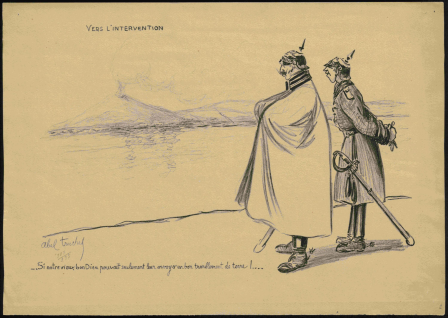 VERS L'INTERVENTION
Abel
... Si notre vieux bon Dieu pouvait seulement leur envoyer un bon tremblement de terre !....